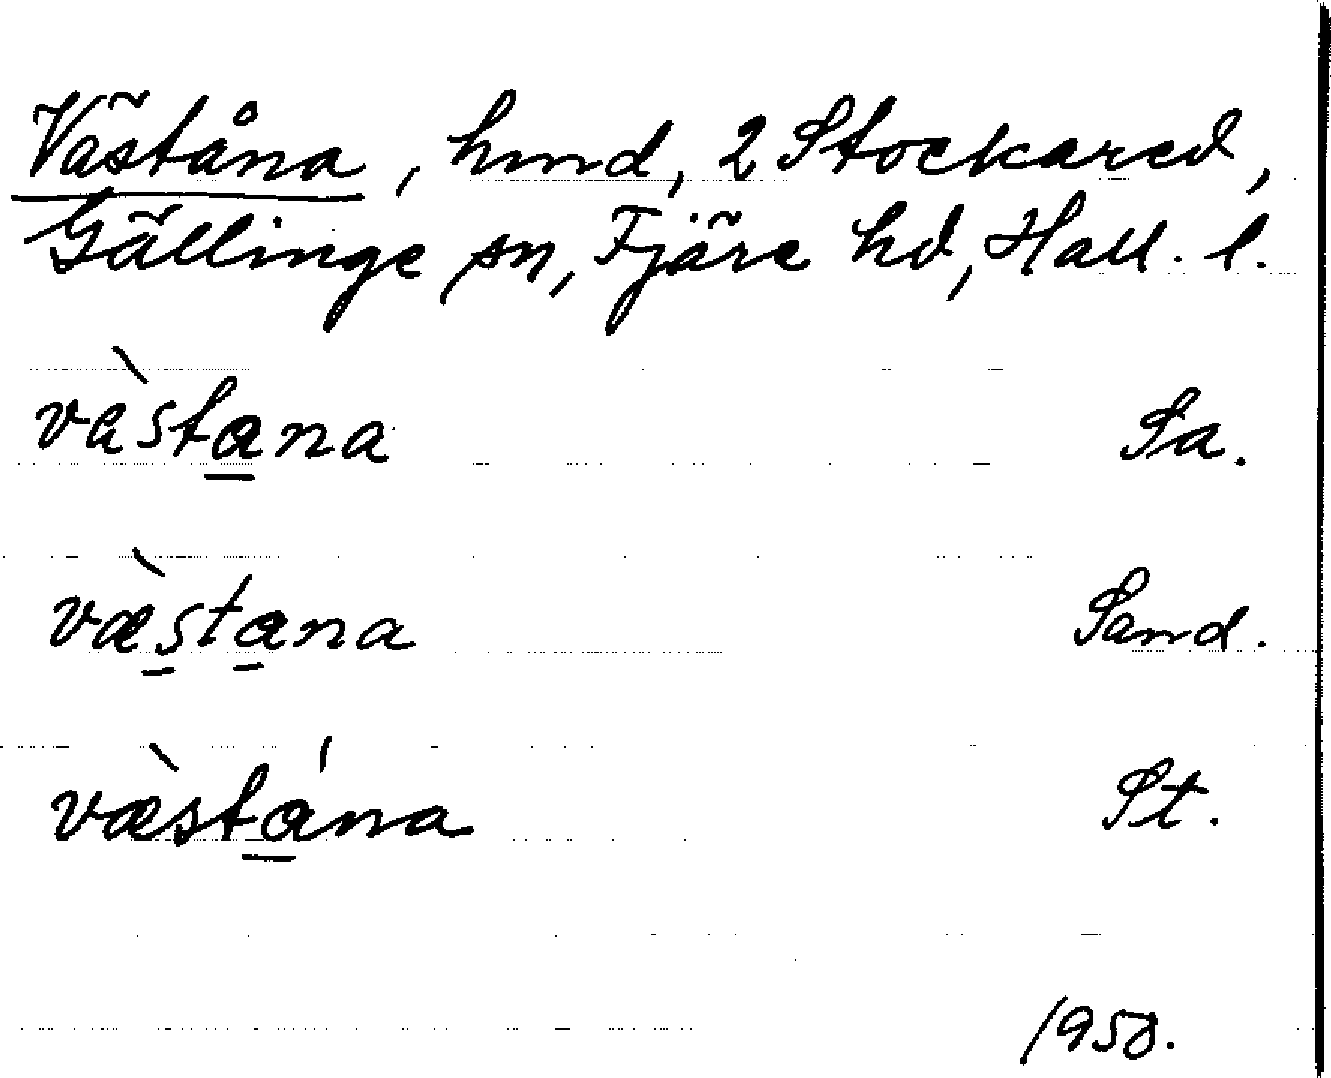 Väståna, hmd, 2 Stockared,
Gällinge sn, Fjäre hd, Hall. l.
vàstana Sa.
væ̀stana Sand.
væ̀stána St.
1950.